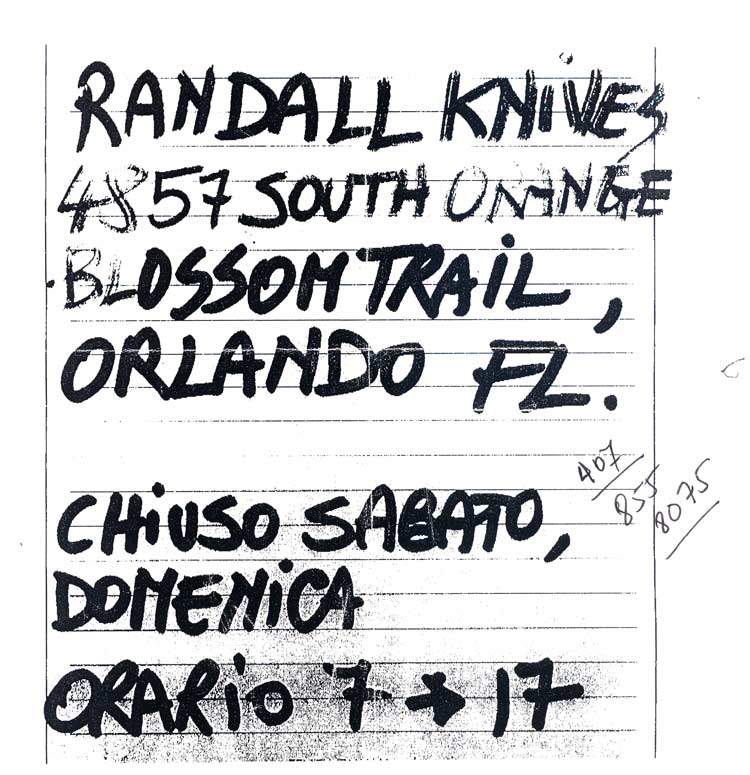 RANDALL KNiVES
4857 SOUTH ORANGE
BLOSSOM TRAiL,
ORLANDO FL.
407
855
8075
CHiUSO SABATO,
DOMENiCA
ORARiO 7 → 17